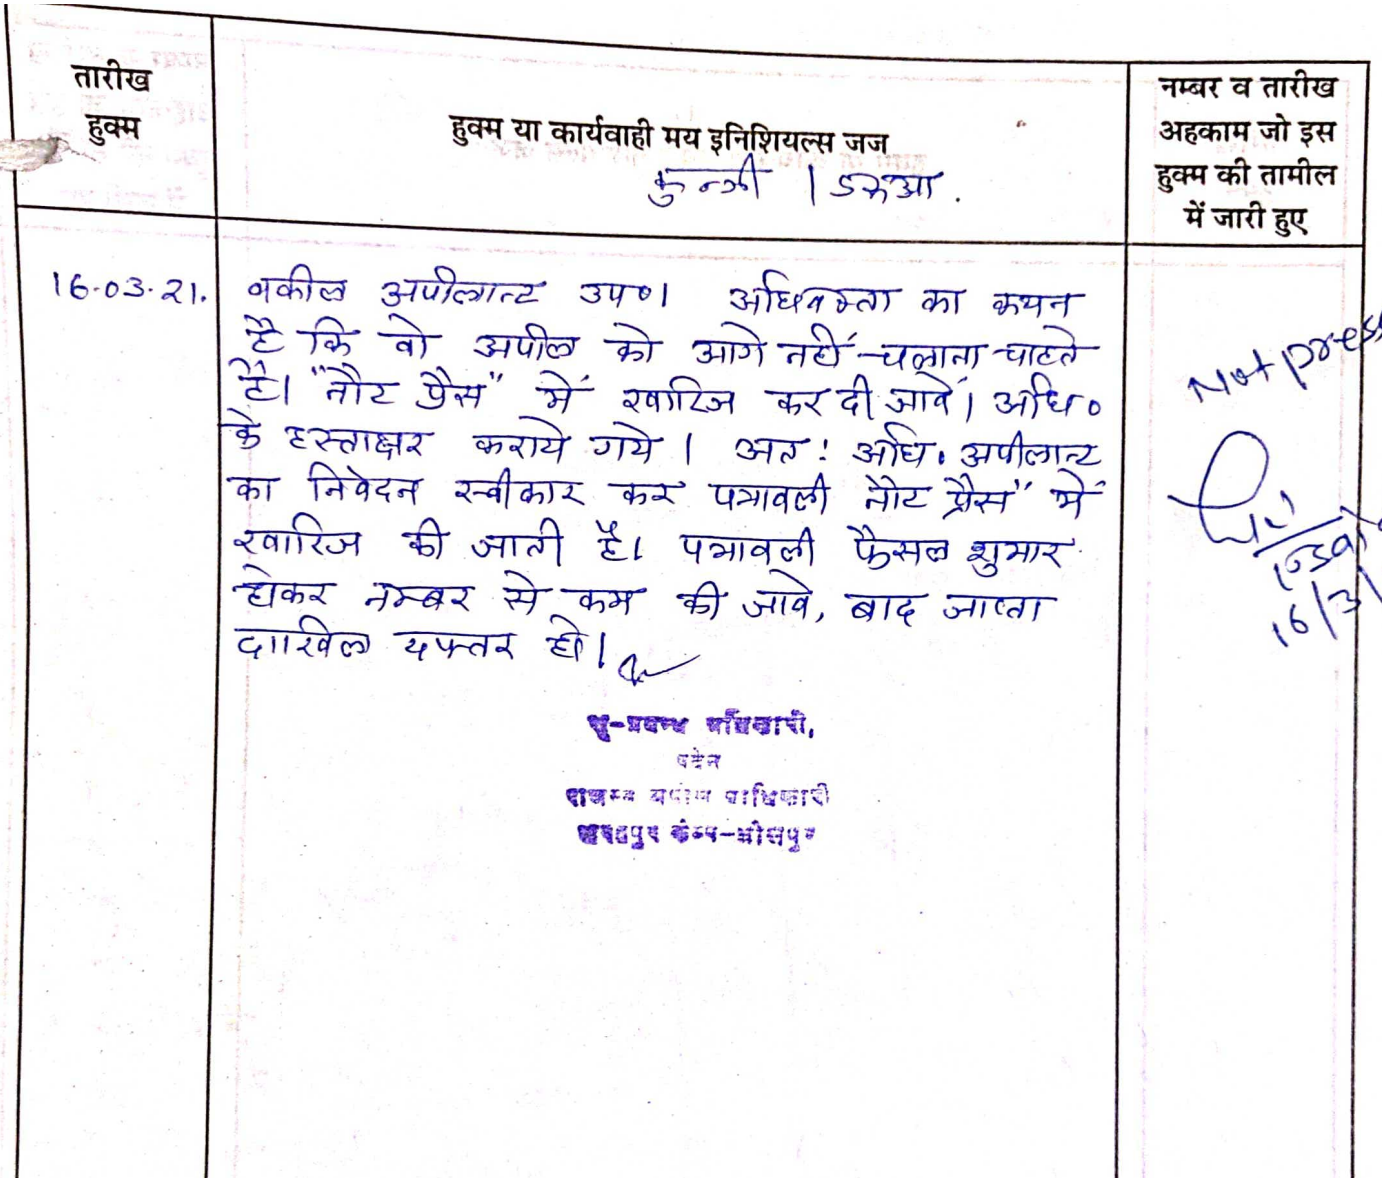 तारीख
हुक्म
हुक्म या कार्यवाही मय इनिशियल्स जज
नम्बर व तारीख
अहकाम जो इस
हुक्म की तामील
में जारी हुए
16.03.21.
वकील अपीलान्ट उप०। अधिवक्ता का कथन
है कि वो अपील को आगे नहीं चलाना चाहते
है। "नौट प्रैस" में खारिज कर दी जावें। अधि०
के हस्ताक्षर कराये गये। अत: अधि. अपीलान्ट
का निवेदन स्वीकार कर पत्रावली नौट प्रैस" में
खारिज की जाती है। पत्रावली फैसल शुमार
होकर नम्बर से कम की जावे, बाद जाप्ता
दाखिल दफ्तर हो।
Not press
16/3/
भू-प्रबन्ध अधिकारी,
पदेन
राजस्व अपील अधिकारी
कैम्प-धौलपुर